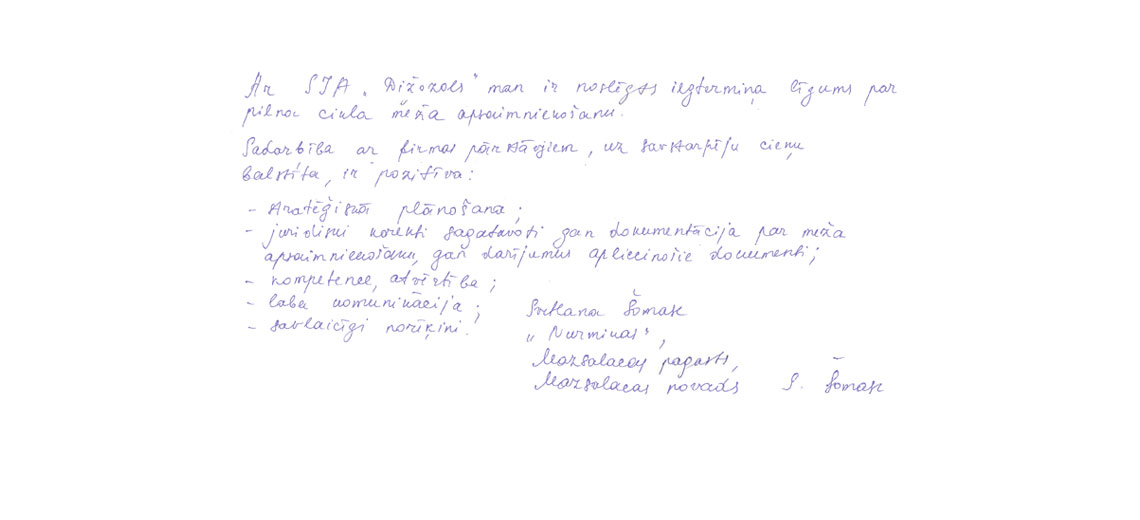 Ar SIA „Dižozols" man ir noslēgts ilgtermiņa līgums par
pilna cikla meža apsaimniekošanu.
Sadarbība ar firmas pārstāvjiem, uz savstarpēju cieņu
balstīta, ir pozitīva:
- stratēģiskā plānošana;
- juridiski korekti sagatavoti gan dokumentācija par meža
apsaimniekošanu, gan darījumus apliecinošie dokumenti;
- kompetence, atvērtība;
- laba komunikācija;
- savlaicīgi norēķini.
Svetlana Šomase
„Nurminas",
Mazsalacas pagasts,
Mazsalacas novads S. Šomase